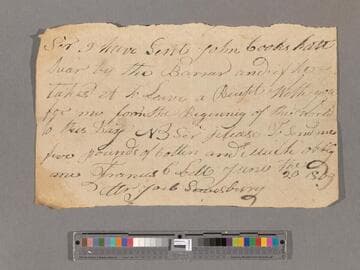 Sir I have Sent John Cookshatt
by the Barrar and if he
takes it to Leave a Receipt With you
for me from the Beginning of the World
to this Day NB Sir please to Send me
five pounds of Cotten and Much oblige
me Francis C Hill June the
29 1809
Mr Jacob